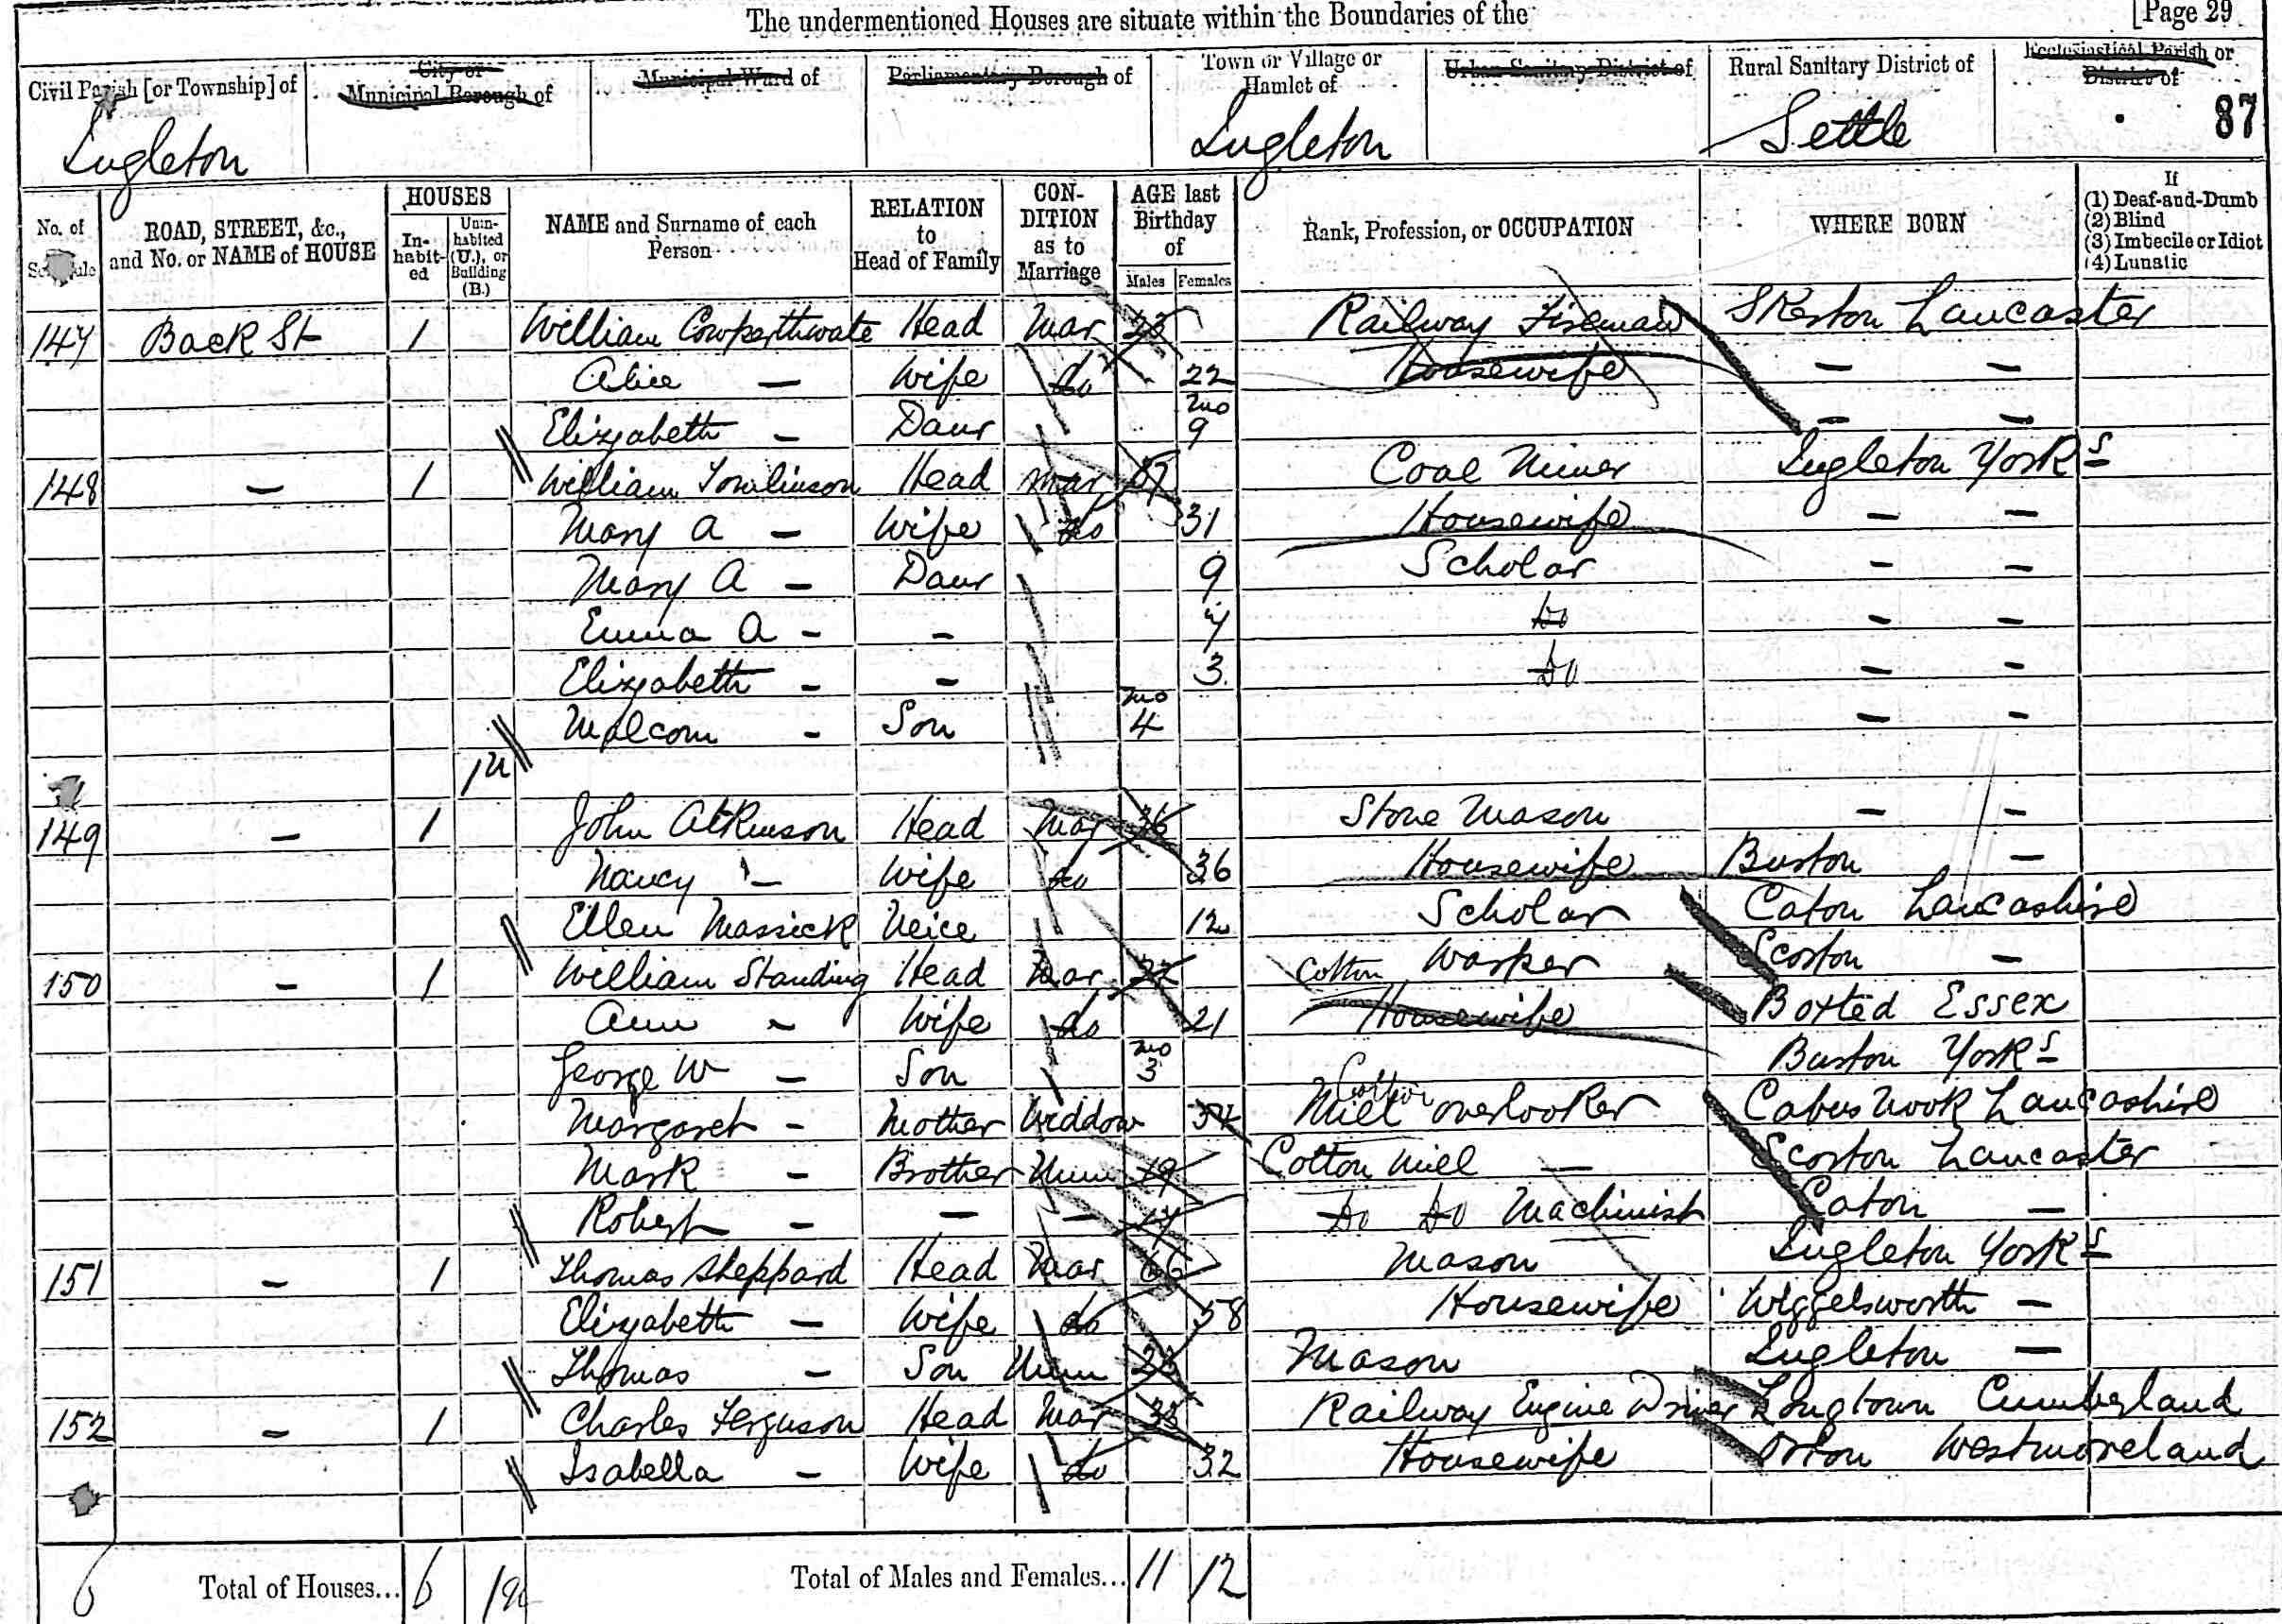 The undermentioned Houses are situate within the Boundaries of the
[Page 29
Civil Parish [or Township] of
City or Municipal Borough of
Municipal Ward of
Parliamentary Borough of
Town or Village or Hamlet of
Urban Sanitary District of
Rural Sanitary District of
Ecclesiastical Parish or District of
Ingleton
Ingleton
Settle
87
No. of Schedule
ROAD, STREET, &c., and No. or NAME of HOUSE
HOUSES
In-habit-ed
Unin-habited (U.), or Building (B.)
NAME and Surname of each Person
RELATION to Head of Family
CON-DITION as to Marriage
AGE last Birthday of
Males
Females
Rank, Profession, or OCCUPATION
WHERE BORN
If
(1) Deaf-and-Dumb
(2) Blind
(3) Imbecile or Idiot
(4) Lunatic
147 Back St 1 William Cowperthwate Head Mar 23 Railway Fireman Skerton Lancaster
Alice — Wife do 22 Housewife — —
Elizabeth — Daur mo 9 — —
148 — 1 William Tomlinson Head Mar Coal Miner Ingleton Yorks
Mary A — Wife do 31 Housewife — —
Mary A — Daur 9 Scholar — —
Emma A — — 7 Do — —
Elizabeth — — 3 Do — —
Malcom — Son mo 4 — —
1U
149 — 1 John Atkinson Head Mar 36 Stone Mason — —
Nancy — Wife do 36 Housewife Burton —
Ellen Massick Neice 12 Scholar Caton Lancashire
150 — 1 William Standing Head Mar 22 Cotton Worker Scorton —
Ann — Wife do 21 Housewife Boxted Essex
George W — Son mo 3 Burton Yorks
Margaret — Mother Widdow 54 Cotton Mill overlooker Cabus Nook Lancashire
Mark — Brother Unm 19 Cotton Mill — Scorton Lancaster
Robert — — — 17 Do Do Machinist Caton —
151 — 1 Thomas Sheppard Head Mar 66 Mason Ingleton Yorks
Elizabeth — Wife do 58 Housewife Wiggelsworth —
Thomas — Son Unm Mason Ingleton —
152 — 1 Charles Ferguson Head Mar 33 Railway Engine Driver Longtown Cumberland
Isabella — Wife do 32 Housewife Orton Westmoreland
6 Total of Houses... 6 1U Total of Males and Females... 11 12